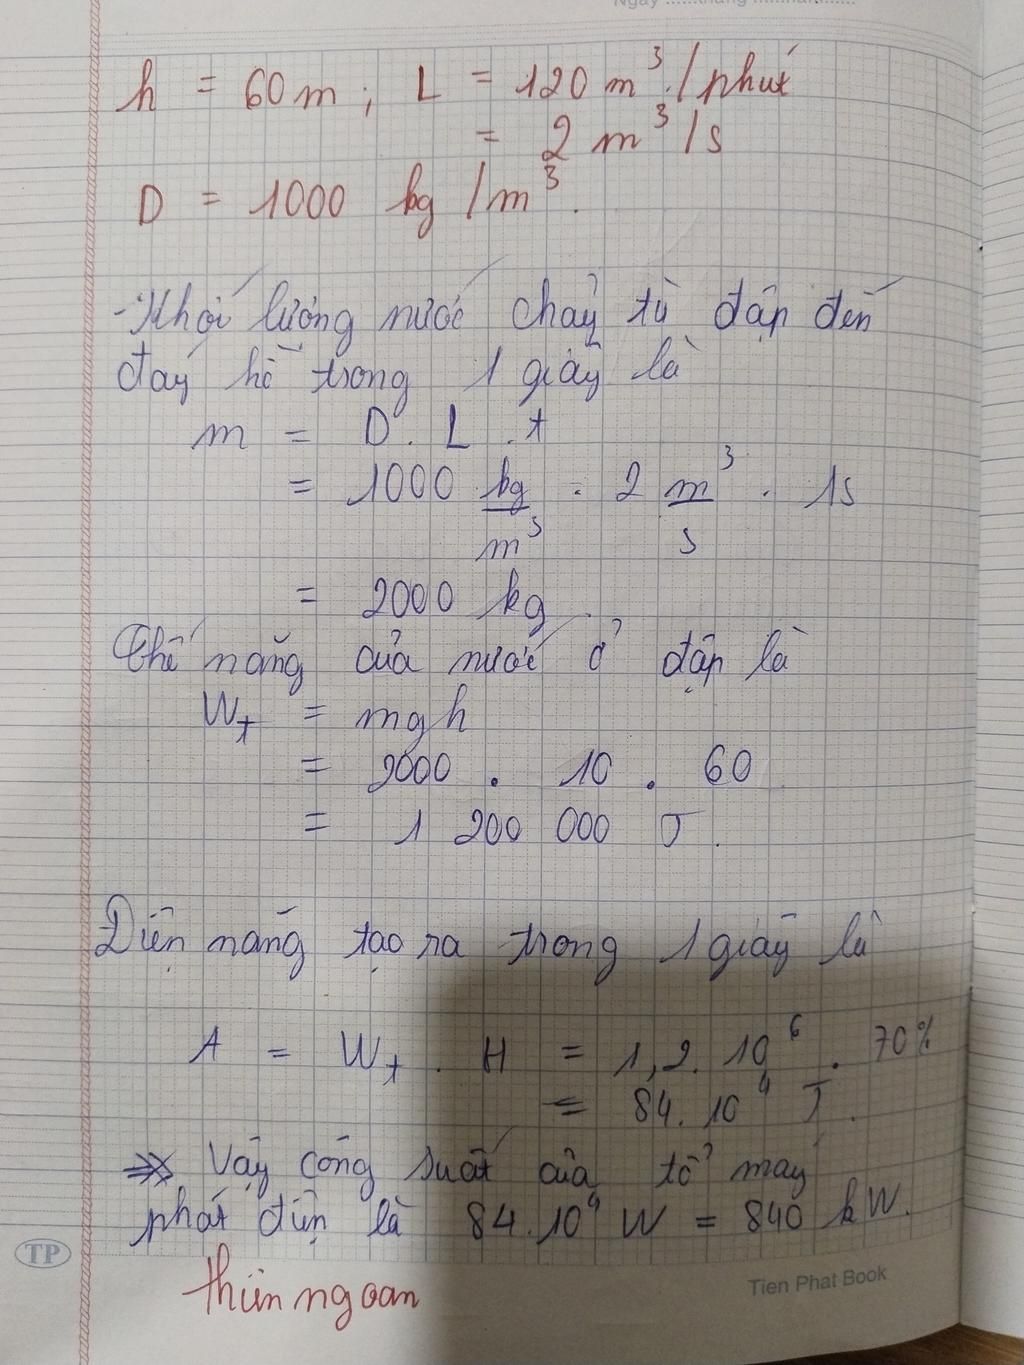 Ngày ......tháng ......năm......
h = 60m ; L = 120 m³/phút
= 2 m³/s
D = 1000 kg/m³.
- Khối lượng nước chảy từ đập đến
đáy hồ trong 1 giây là
m = D . L . t
= 1000 kg/m³ . 2 m³/s . 1s
= 2000 kg.
Thế năng của nước ở đập là
Wt = mgh
= 2000 . 10 . 60
= 1 200 000 J.
Điện năng tạo ra trong 1 giây là
A = Wt . H = 1,2. 10⁶ . 70%
= 84. 10⁴ J.
=> Vậy công suất của tổ máy
phát điện là 84.10⁴ W = 840 kW.
TP
Tien Phat Book
thiên ngoan